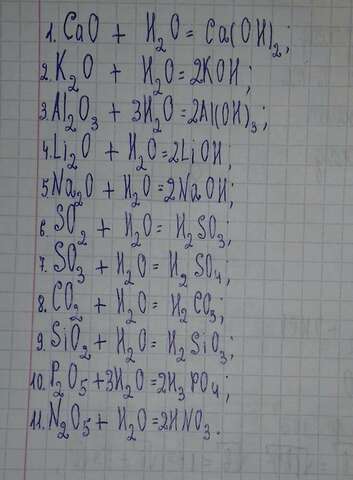 1. CaO + H₂O = Ca(OH)₂;
2. K₂O + H₂O = 2KOH;
3. Al₂O₃ + 3H₂O = 2Al(OH)₃;
4. Li₂O + H₂O = 2LiOH;
5. Na₂O + H₂O = 2NaOH;
6. SO₂ + H₂O = H₂SO₃;
7. SO₃ + H₂O = H₂SO₄;
8. CO₂ + H₂O = H₂CO₃;
9. SiO₂ + H₂O = H₂SiO₃;
10. P₂O₅ + 3H₂O = 2H₃PO₄;
11. N₂O₅ + H₂O = 2HNO₃.